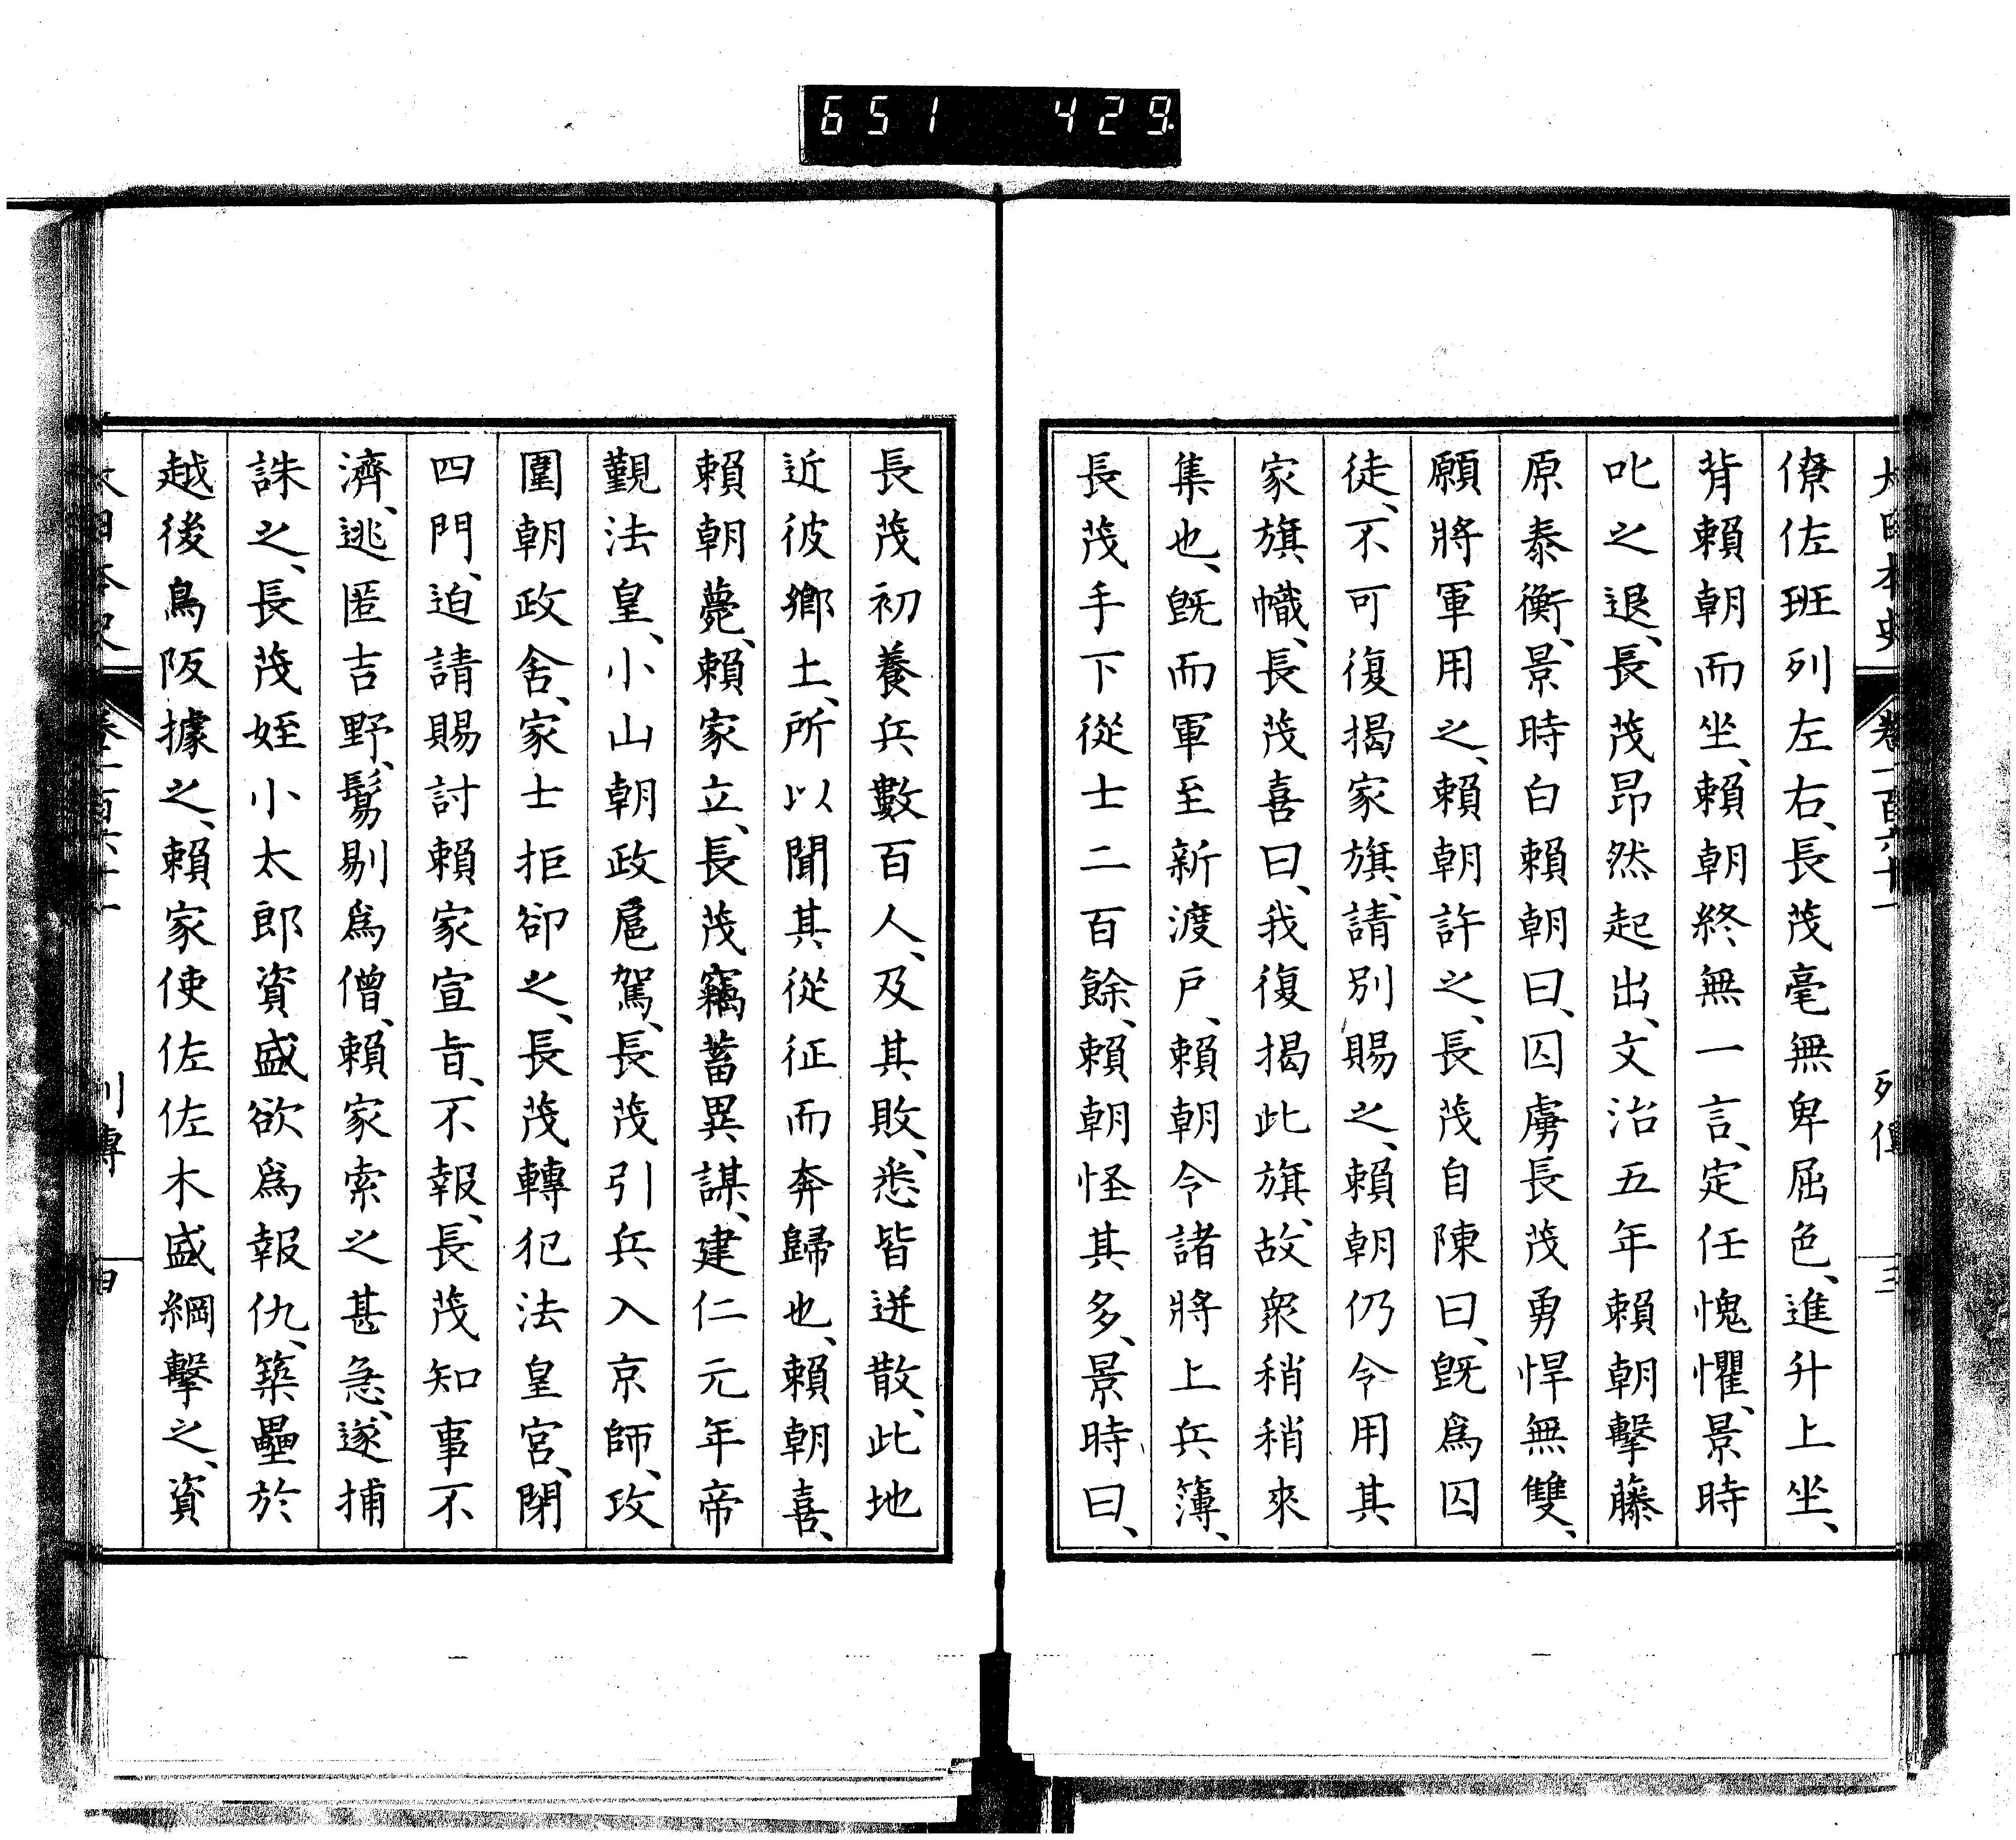 651 429
大日本史 卷二百六十一 列傳 三
僚佐班列左右、長茂毫無卑屈色、進升上坐、
背賴朝而坐、賴朝終無一言、定任愧懼、景時
叱之退、長茂昂然起出、文治五年賴朝擊藤
原泰衡、景時白賴朝曰、囚虜長茂勇悍無雙、
願將軍用之、賴朝許之、長茂自陳曰、旣爲囚
徒、不可復揭家旗、請別賜之、賴朝仍令用其
家旗幟、長茂喜曰、我復揭此旗、故衆稍稍來
集也、旣而軍至新渡戶、賴朝令諸將上兵簿、
長茂手下從士二百餘、賴朝怪其多、景時曰、
長茂初養兵數百人、及其敗、悉皆迸散、此地
近彼鄉土、所以聞其從征而奔歸也、賴朝喜、
賴朝薨、賴家立、長茂竊蓄異謀、建仁元年帝
覲法皇、小山朝政扈駕、長茂引兵入京師、攻
圍朝政舍、家士拒卻之、長茂轉犯法皇宮、閉
四門、迫請賜討賴家宣旨、不報、長茂知事不
濟、逃匿吉野、鬄剔爲僧、賴家索之甚急、遂捕
誅之、長茂姪小太郎資盛欲爲報仇、築壘於
越後鳥阪據之、賴家使佐佐木盛綱擊之、資